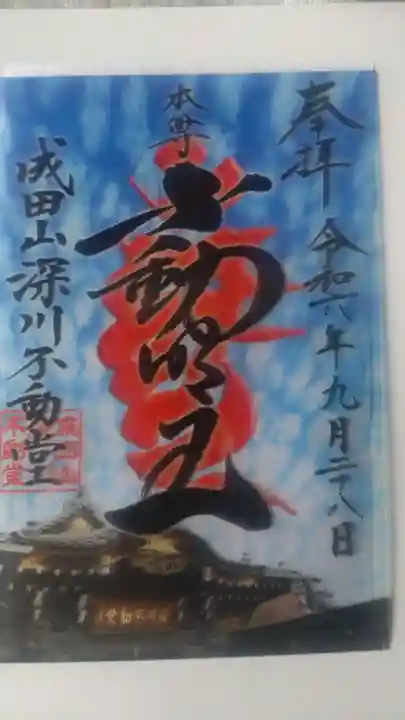 奉拝 令和六年九月二十八日
本尊
不動明王
成田山深川不動堂